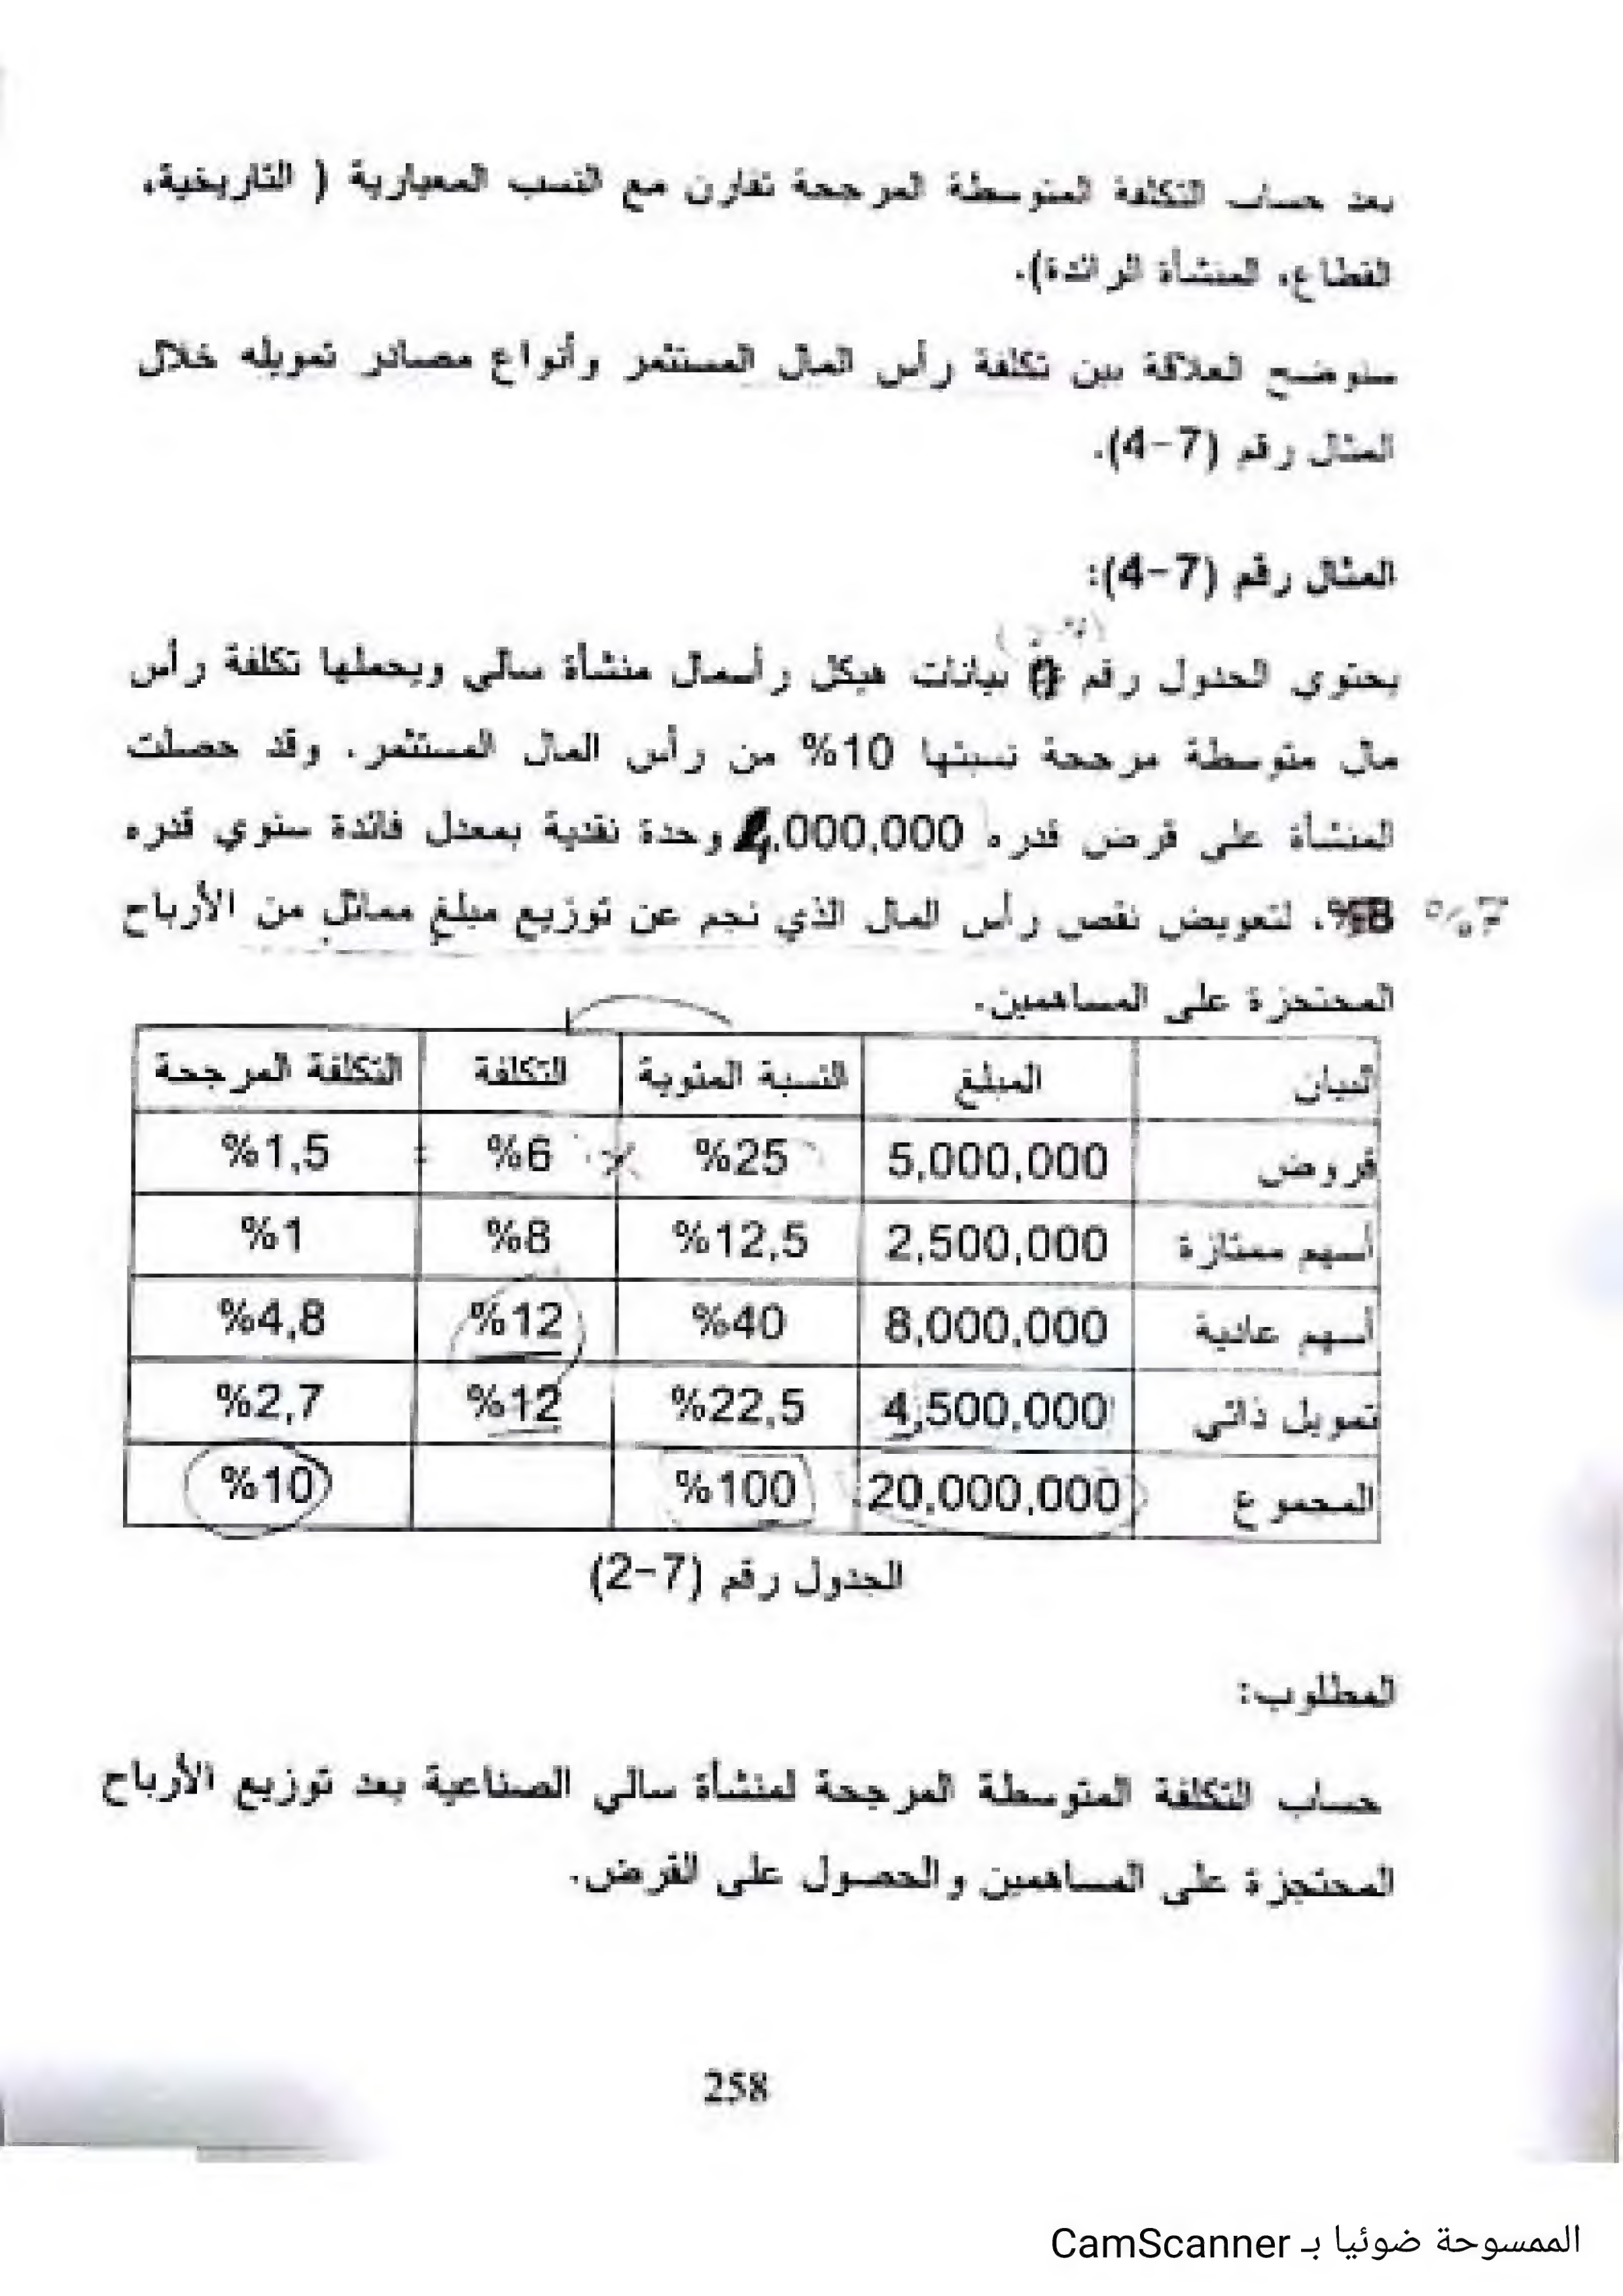 بعد حساب التكلفة المتوسطة المرجحة تقارن مع النسب المعيارية ( التاريخية،
القطاع، المنشأة الرائدة).
سنوضح العلاقة بين تكلفة رأس المال المستثمر وأنواع مصادر تمويله خلال
المثال رقم (7-4).
المثال رقم (7-4):
يحتوي الجدول رقم بيانات هيكل رأسمال منشأة سالي ويحملها تكلفة رأس
مال متوسطة مرجحة نسبتها 10% من رأس المال المستثمر. وقد حصلت
المنشأة على قرض قدره 4,000,000 وحدة نقدية بمعدل فائدة سنوي قدره
%7 ، لتعويض نقص رأس المال الذي نجم عن توزيع مبلغ مماثل من الأرباح
المحتجزة على المساهمين.
البيان المبلغ النسبة المئوية التكلفة التكلفة المرجحة
قروض 5,000,000 %25 × %6 = %1,5
أسهم ممتازة 2,500,000 %12,5 %8 %1
أسهم عادية 8,000,000 %40 %12 %4,8
تمويل ذاتي 4,500,000 %22,5 %12 %2,7
المجموع 20,000,000 %100 %10
الجدول رقم (7-2)
المطلوب:
حساب التكلفة المتوسطة المرجحة لمنشأة سالي الصناعية بعد توزيع الأرباح
المحتجزة على المساهمين والحصول على القرض.
258
الممسوحة ضوئيا بـ CamScanner